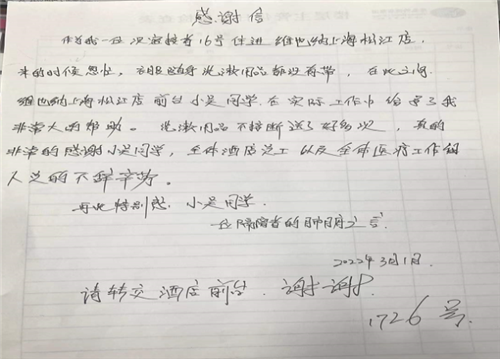 感谢信
作为我一位次密接者16号住进维也纳上海松江店.
来的时候忽忙,衣服随身洗漱用品都没有带,在此之际
维也纳上海松江店前台小吴同学.在实际工作中给予了我
非常大的帮助。洗漱用品不间断送了好多次,真的
非常的感谢小吴同学,全体酒店员工以及全体医疗工作的
人员的不辞辛劳。
再此特别感.小吴同学.
一位隔离者的肺腑之言
2022年3月1日.
请转交酒店前台.谢谢.
1726号.